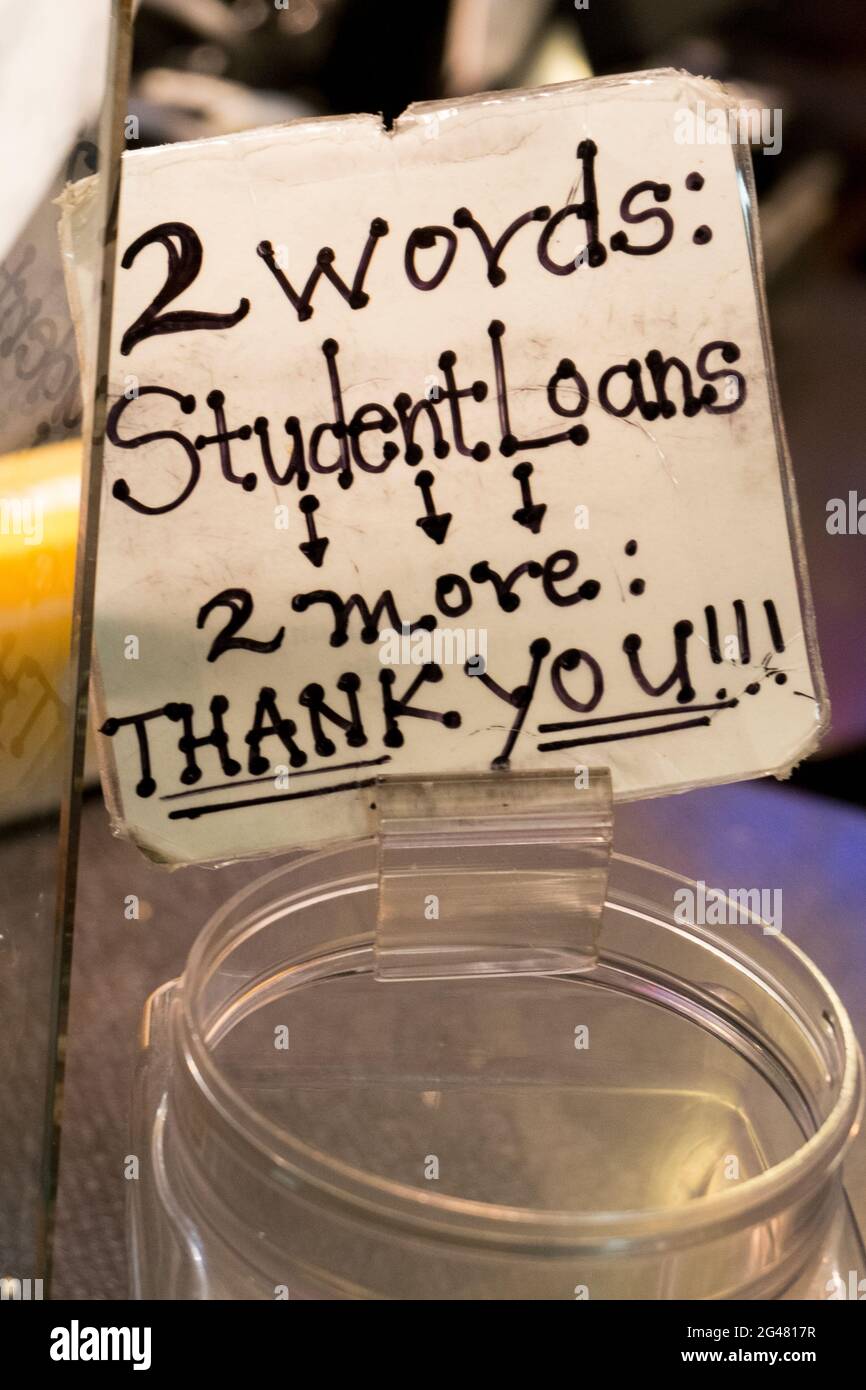 2 words:
Student Loans
2 more:
THANK YOU!!!
alamy
Image ID: 2G4817R
www.alamy.com